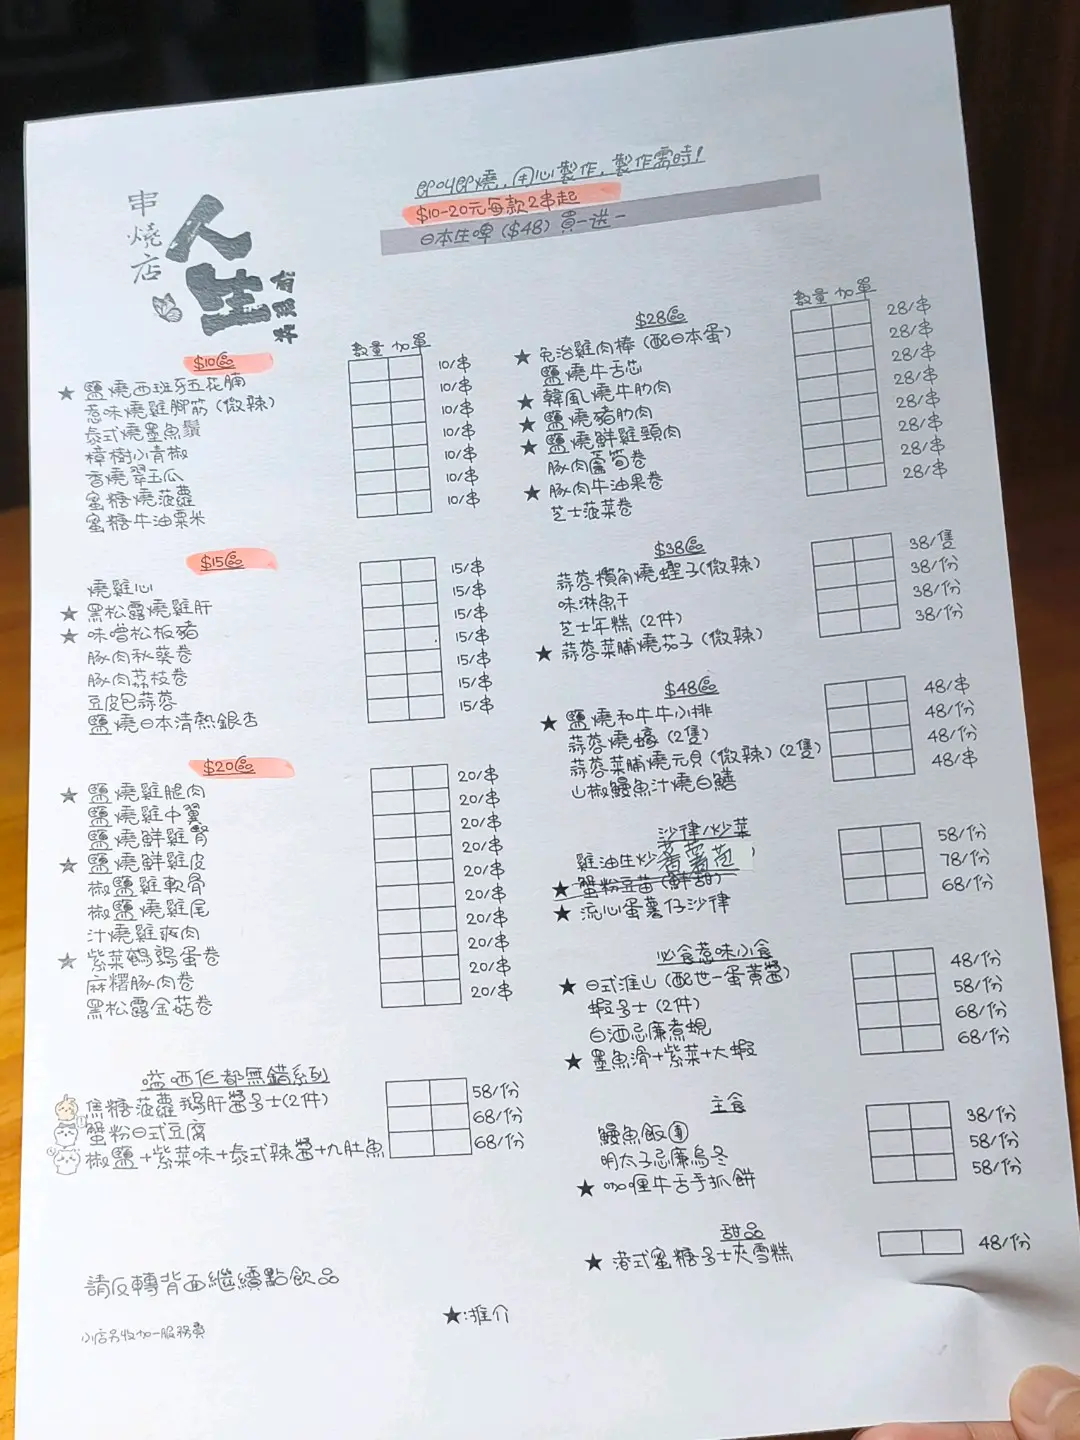 串燒店
人生
有串杯
即叫即燒，用心製作，製作需時！
$10-20元每款2串起
日本生啤 ($48) 買一送一
$10區
數量 加單
★ 鹽燒西班牙五花腩 10/串
惹味燒雞腳筋 (微辣) 10/串
泰式燒墨魚鬚 10/串
樟樹小青椒 10/串
香燒翠玉瓜 10/串
蜜糖燒菠蘿 10/串
蜜糖牛油粟米 10/串
$15區
燒雞心 15/串
★ 黑松露燒雞肝 15/串
★ 味噌松板豬 15/串
豚肉秋葵卷 15/串
豚肉荔枝卷 15/串
豆皮包蒜蓉 15/串
鹽燒日本清熱銀杏 15/串
$20區
★ 鹽燒雞腿肉 20/串
鹽燒雞中翼 20/串
鹽燒鮮雞腎 20/串
★ 鹽燒鮮雞皮 20/串
椒鹽雞軟骨 20/串
椒鹽燒雞尾 20/串
汁燒雞爽肉 20/串
★ 紫菜鵪鶉蛋卷 20/串
麻糬豚肉卷 20/串
黑松露金菇卷 20/串
嗌哂佢都無錯系列
焦糖菠蘿鵝肝醬多士(2件) 58/份
蟹粉日式豆腐 68/份
椒鹽+紫菜味+泰式辣醬+九肚魚 68/份
請反轉背面繼續點飲品
小店另收加一服務費
$28區
數量 加單
★ 免治雞肉棒 (配日本蛋) 28/串
鹽燒牛舌芯 28/串
★ 韓風燒牛肋肉 28/串
★ 鹽燒豬肋肉 28/串
★ 鹽燒鮮雞頸肉 28/串
豚肉蘆筍卷 28/串
★ 豚肉牛油果卷 28/串
芝士菠菜卷 28/串
$38區
蒜蓉欖角燒蟶子(微辣) 38/隻
味淋魚干 38/份
芝士年糕 (2件) 38/份
★ 蒜蓉菜脯燒茄子 (微辣) 38/份
$48區
★ 鹽燒和牛牛小排 48/串
蒜蓉燒蠔 (2隻) 48/份
蒜蓉菜脯燒元貝 (微辣) (2隻) 48/份
山椒鰻魚汁燒白鱔 48/串
沙律/炒菜
雞油生炒番薯苗 58/份
★ 蟹粉豆苗 (鮮甜) 78/份
★ 流心蛋薯仔沙律 68/份
必食惹味小食
★ 日式淮山 (配世一蛋黃醬) 48/份
蝦多士 (2件) 58/份
白酒忌廉煮蜆 68/份
★ 墨魚滑+紫菜+大蝦 68/份
主食
鰻魚飯 38/份
明太子忌廉烏冬 58/份
★ 咖喱牛舌手抓餅 58/份
甜品
★ 港式蜜糖多士夾雪糕 48/份
★:推介